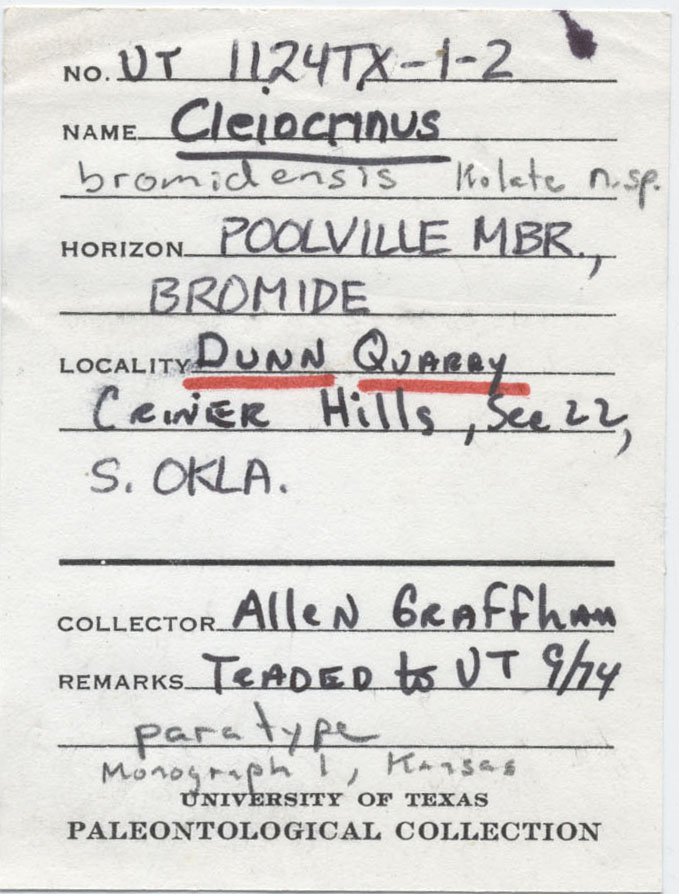 NO. UT 1124TX-1-2
NAME Cleiocrinus
bromidensis Kolata n.sp.
HORIZON POOLVILLE MBR.,
BROMIDE
LOCALITY DUNN QUARRY
CRINER Hills, Sec 22,
S. OKLA.
COLLECTOR Allen GRAFFHAM
REMARKS TRADED to UT 9/74
paratype
Monograph 1, Kansas
UNIVERSITY OF TEXAS
PALEONTOLOGICAL COLLECTION